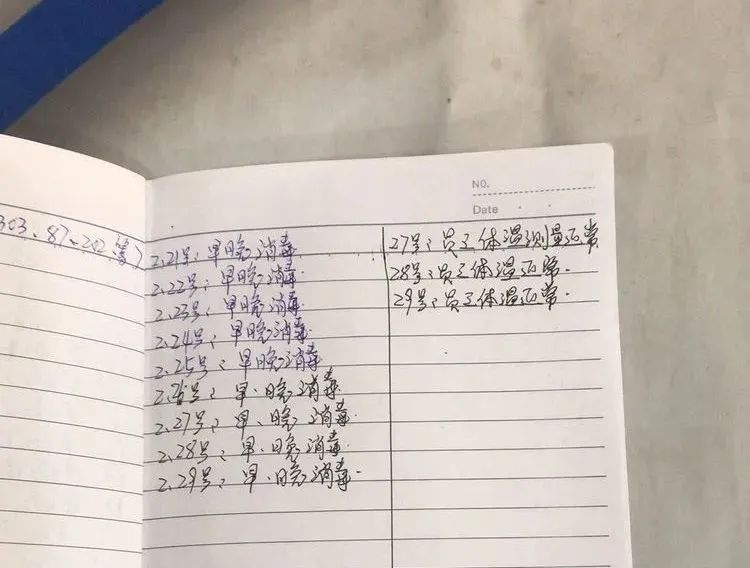 303、87、202
NO.
Date
2.21号：早晚消毒.
2.22号：早晚消毒.
2.23号：早晚消毒.
2.24号：早晚消毒.
2.25号：早晚消毒.
2.26号：早.晚消毒.
2.27号：早.晚消毒.
2.28号：早.晚消毒.
2.29号：早.晚消毒.
27号：员工体温测量正常
28号：员工体温正常.
29号：员工体温正常.